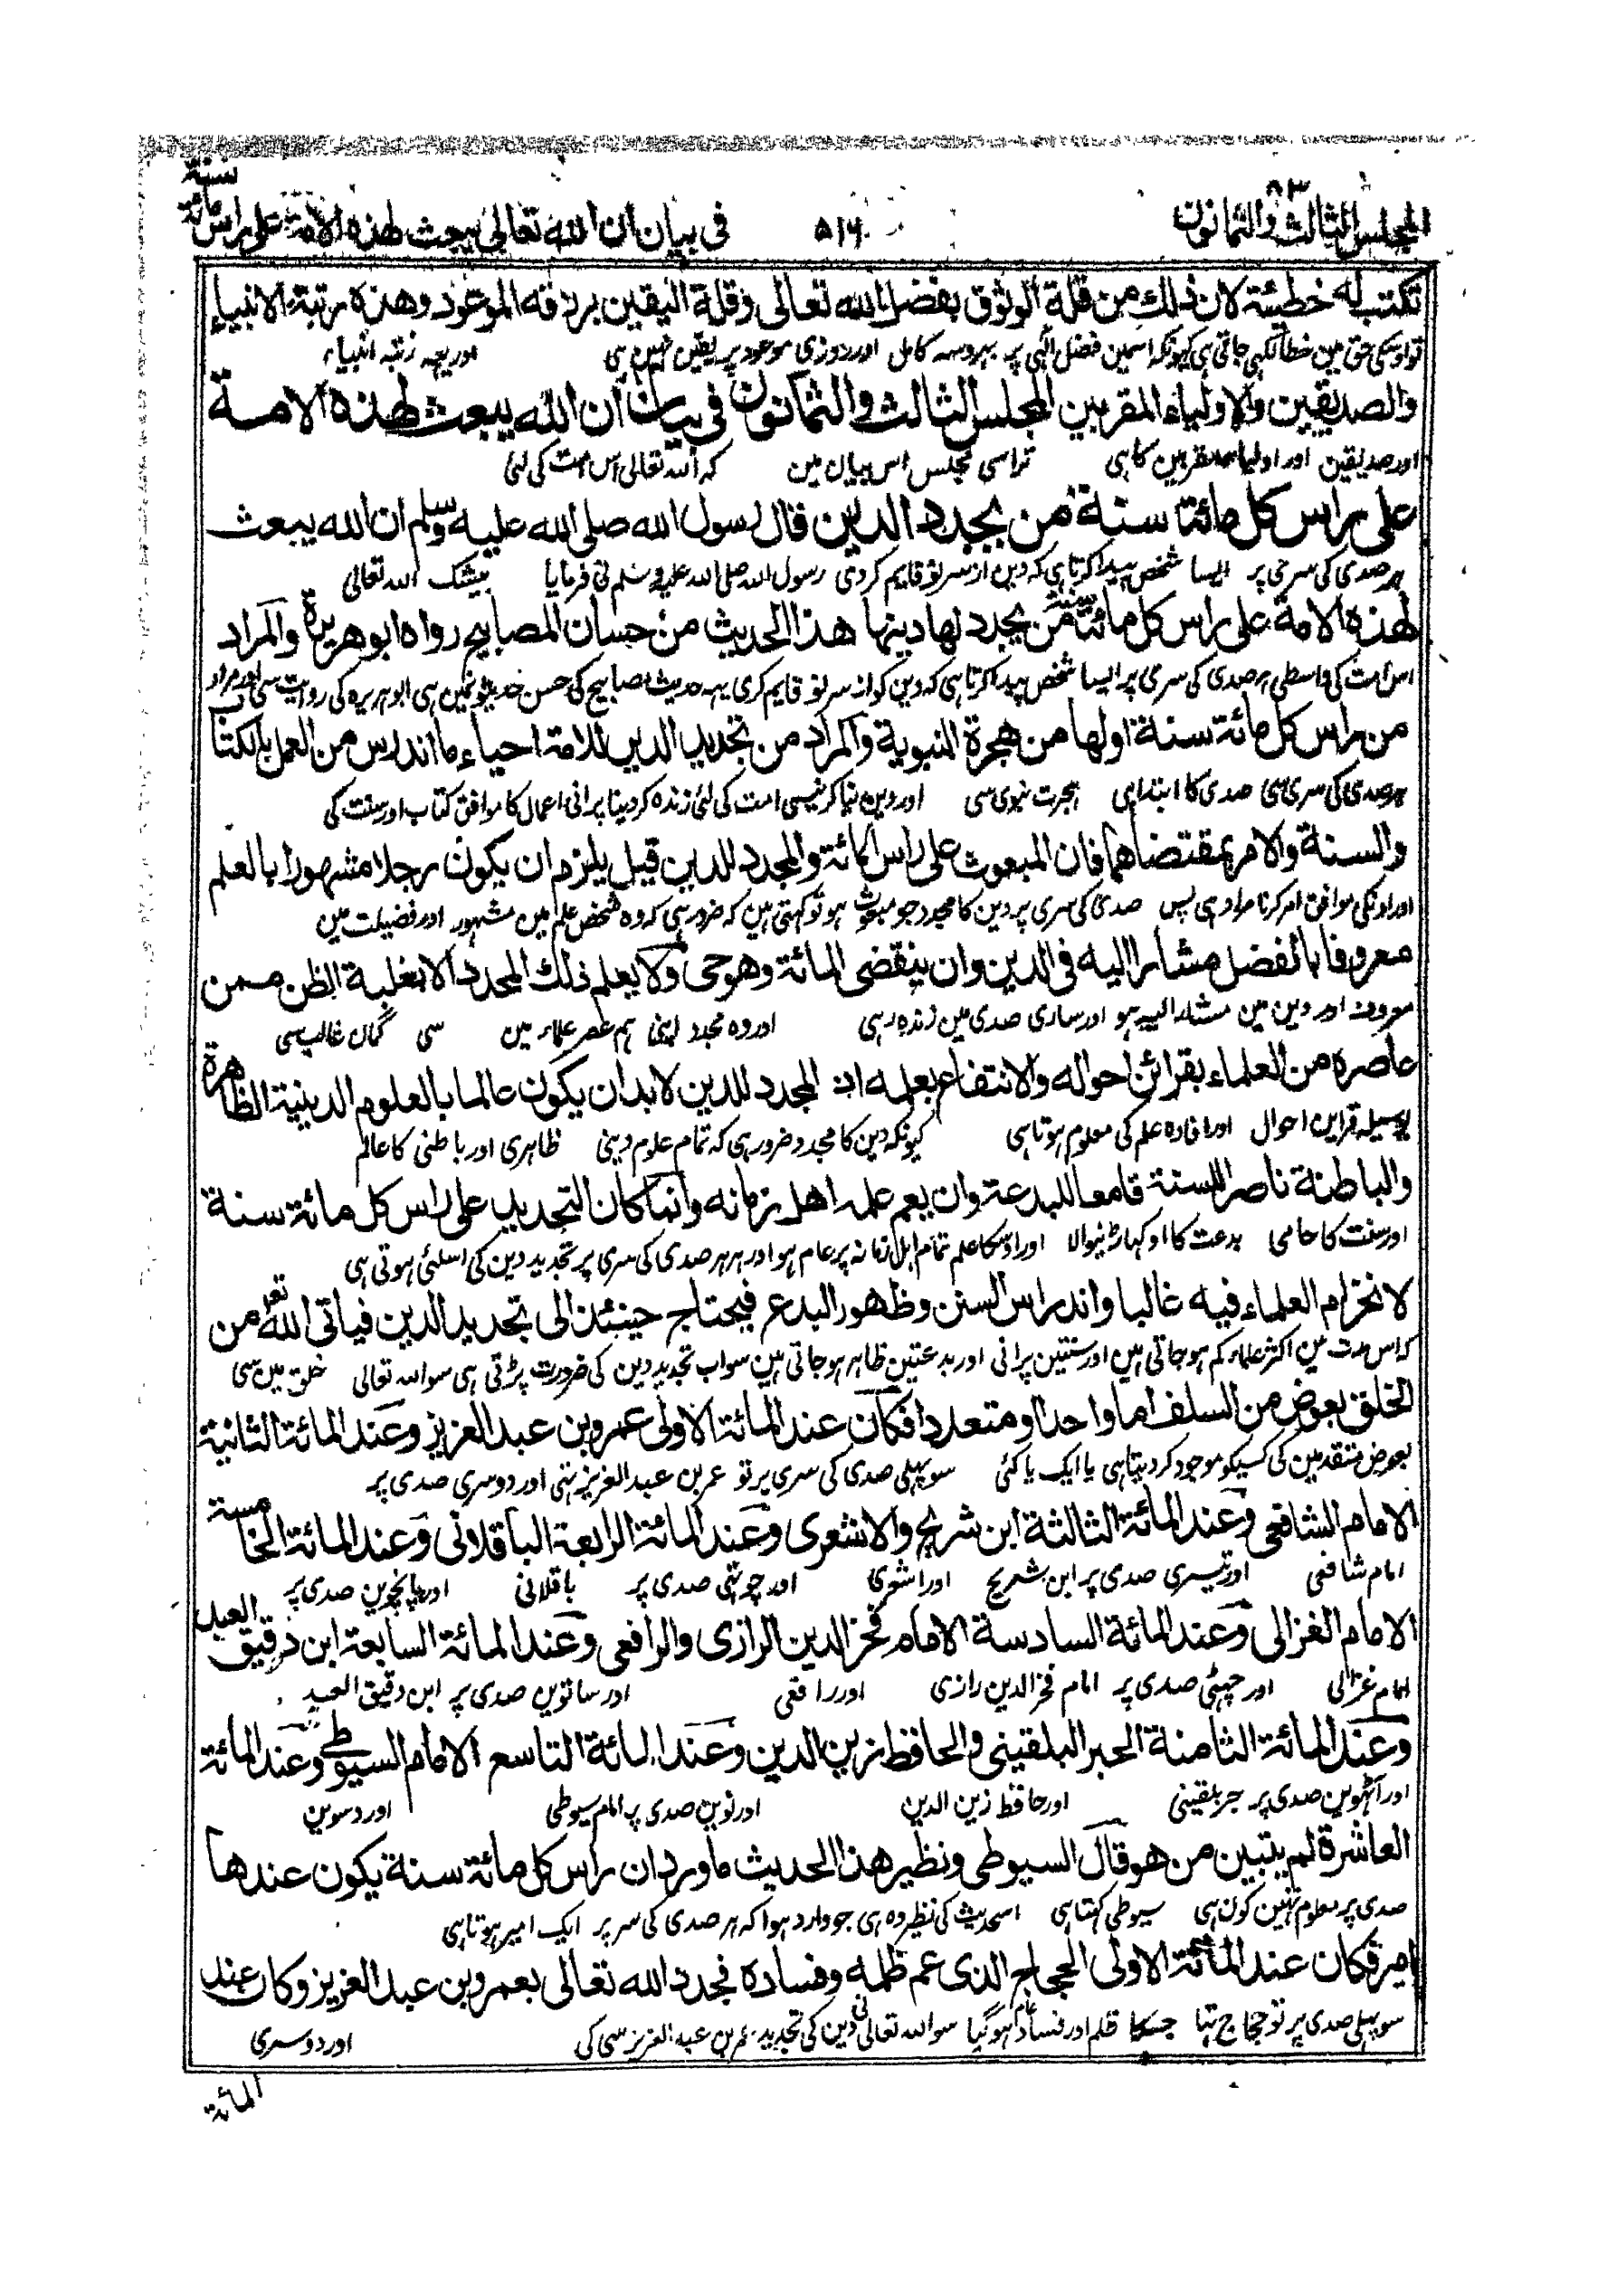 المجلس الثالث والثمانون ٨٣ ٥١٦ في بيان ان الله تعالى يبعث لهذه الامة على راس مائة سنة
تكتب له خطيئة لان ذلك من قلة الوثوق بفضل الله تعالى وقلة اليقين برزقه الموعود وهذه رتبة الانبياء
تو اوسکی حق مین خطا لکہی جاتی ہی کیونکہ اسمین فضل الٰہی پر بہروسہ کامل اور روزی موعود پر یقین نہین ہی اور یہہ رتبہ انبیاء
والصديقين والاولياء المقربين المجلس الثالث والثمانون في بيان ان الله يبعث لهذه الامة
اور صدیقین اور اولیا مقربین کا ہی تراسی مجلس اس بیان مین کہ اللہ تعالی اس امت کی لئی
على راس كل مائة سنة من يجدد الدين قال رسول الله صلى الله عليه وسلم ان الله يبعث
ہر صدی کی سری پر ایسا شخص پیدا کرتا ہی کہ دین از سر نو قایم کردی رسول اللہ صلی اللہ علیہ وسلم نی فرمایا بیشک اللہ تعالی
لهذه الامة على راس كل مائة سنة من يجدد لها دينها هذا الحديث من حسان المصابيح رواه ابو هريرة والمراد
اس امت کی واسطی ہر صدی کی سری پر ایسا شخص پیدا کرتا ہی کہ دین کو از سر نو قایم کری یہہ حدیث مصابیح کی حسن حدیثونمین ہی ابو ہریرہ کی روایت سی اور مراد
من راس كل مائة سنة اولها من هجرة النبوية والمراد من تجديد الدين للامة احياء ما اندرس من العمل بالكتاب
ہر صدی کی سری سی صدی کا ابتدا ہی ہجرت نبوی سی اور دین نیا کرنیسی امت کی لئی زندہ کردینا پرانی اعمال کا موافق کتاب اور سنت کی
والسنة والامر بمقتضاهما فان المبعوث على راس المائة والمجدد للدين قيل يلزم ان يكون رجلا مشهورا بالعلم
اور اونکی موافق امر کرنا مراد ہی پس صدی کی سری پر دین کا مجدد جو مبعوث ہو تو کہتی ہین کہ ضرور ہی کہ وہ شخص علم مین مشہور اور فضیلت مین
معروفا بالفضل مشارا اليه في الدين وان ينقضى المائة وهو حى ولا يعلم ذلك المجدد الا بغلبة الظن ممن
معروف اور دین مین مشار الیہ ہو اور ساری صدی مین زندہ رہی اور وہ مجدد اپنی ہم عصر علماء مین سی گمان غالب سی
عاصره من العلماء بقرائن احواله والانتفاع بعلمه اذ المجدد للدين لا بد ان يكون عالما بالعلوم الدينية الظاهرة
بوسیلہ قراین احوال اور افادہ علم کی معلوم ہوتا ہی کیونکہ دین کا مجدد ضرور ہی کہ تمام علوم دینی ظاہری اور باطنی کا عالم
والباطنة ناصرا للسنة قامعا للبدعة وان يعم علمه اهل زمانه وانما كان التجديد على راس كل مائة سنة
اور سنت کا حامی بدعت کا اوکہاڑنیوالا اور اوسکا علم تمام اہل زمانہ پر عام ہو اور ہر ہر صدی کی سری پر تجدید دین کی اسلئی ہوتی ہی
لانخرام العلماء فيه غالبا واندراس السنن وظهور البدع فيحتاج حينئذ الى تجديد الدين فياتى الله تع من
کہ اس مدت مین اکثر علماء کم ہوجاتی ہین اور سنتین پرانی اور بدعتین ظاہر ہوجاتی ہین سو اب تجدید دین کی ضرورت پڑتی ہی سو اللہ تعالی خلق مین سی
الخلق بعوض من السلف اما واحدا ومتعددا فكان عند المائة الاولى عمرو بن عبد العزيز وعند المائة الثانية
بعوض متقدمین کی کسیکو موجود کردیتا ہی یا ایک یا کئی سو پہلی صدی کی سری پر تو عمر بن عبد العزیز تہی اور دوسری صدی پر
الامام الشافعى وعند المائة الثالثة ابن شريح والاشعرى وعند المائة الرابعة الباقلانى وعند المائة الخامسة
امام شافعی اور تیسری صدی پر ابن شریح اور اشعری اور چوتہی صدی پر باقلانی اور پانچوین صدی پر
الامام الغزالى وعند المائة السادسة الامام فخر الدين الرازى والرافعى وعند المائة السابعة ابن دقيق العيد
امام غزالی اور چہٹی صدی پر امام فخر الدین رازی اور رافعی اور ساتوین صدی پر ابن دقیق العید
وعند المائة الثامنة الحبر البلقينى والحافظ زين الدين وعند المائة التاسع الامام السيوطى وعند المائة
اور آٹہوین صدی پر حبر بلقینی اور حافظ زین الدین اور نوین صدی پر امام سیوطی اور دسوین
العاشرة لم يتبين من هو قال السيوطى ونظير هذا الحديث ما ورد ان راس كل مائة سنة يكون عندها
صدی پر معلوم نہین کون ہی سیوطی کہتا ہی اس حدیث کی نظیر وہ ہی جو وارد ہوا کہ ہر صدی کی سر پر ایک امیر ہوتا ہی
امر فكان عند المائة الاولى الحجاج الذى عم ظلمه وفساده فجدد الله تعالى بعمرو بن عبد العزيز وكان عند
سو پہلی صدی پر تو حجاج تہا جسکا ظلم اور فساد عام ہوگیا سو اللہ تعالی نی دین کی تجدید عمر بن عبد العزیز سی کی اور دوسری
المائة